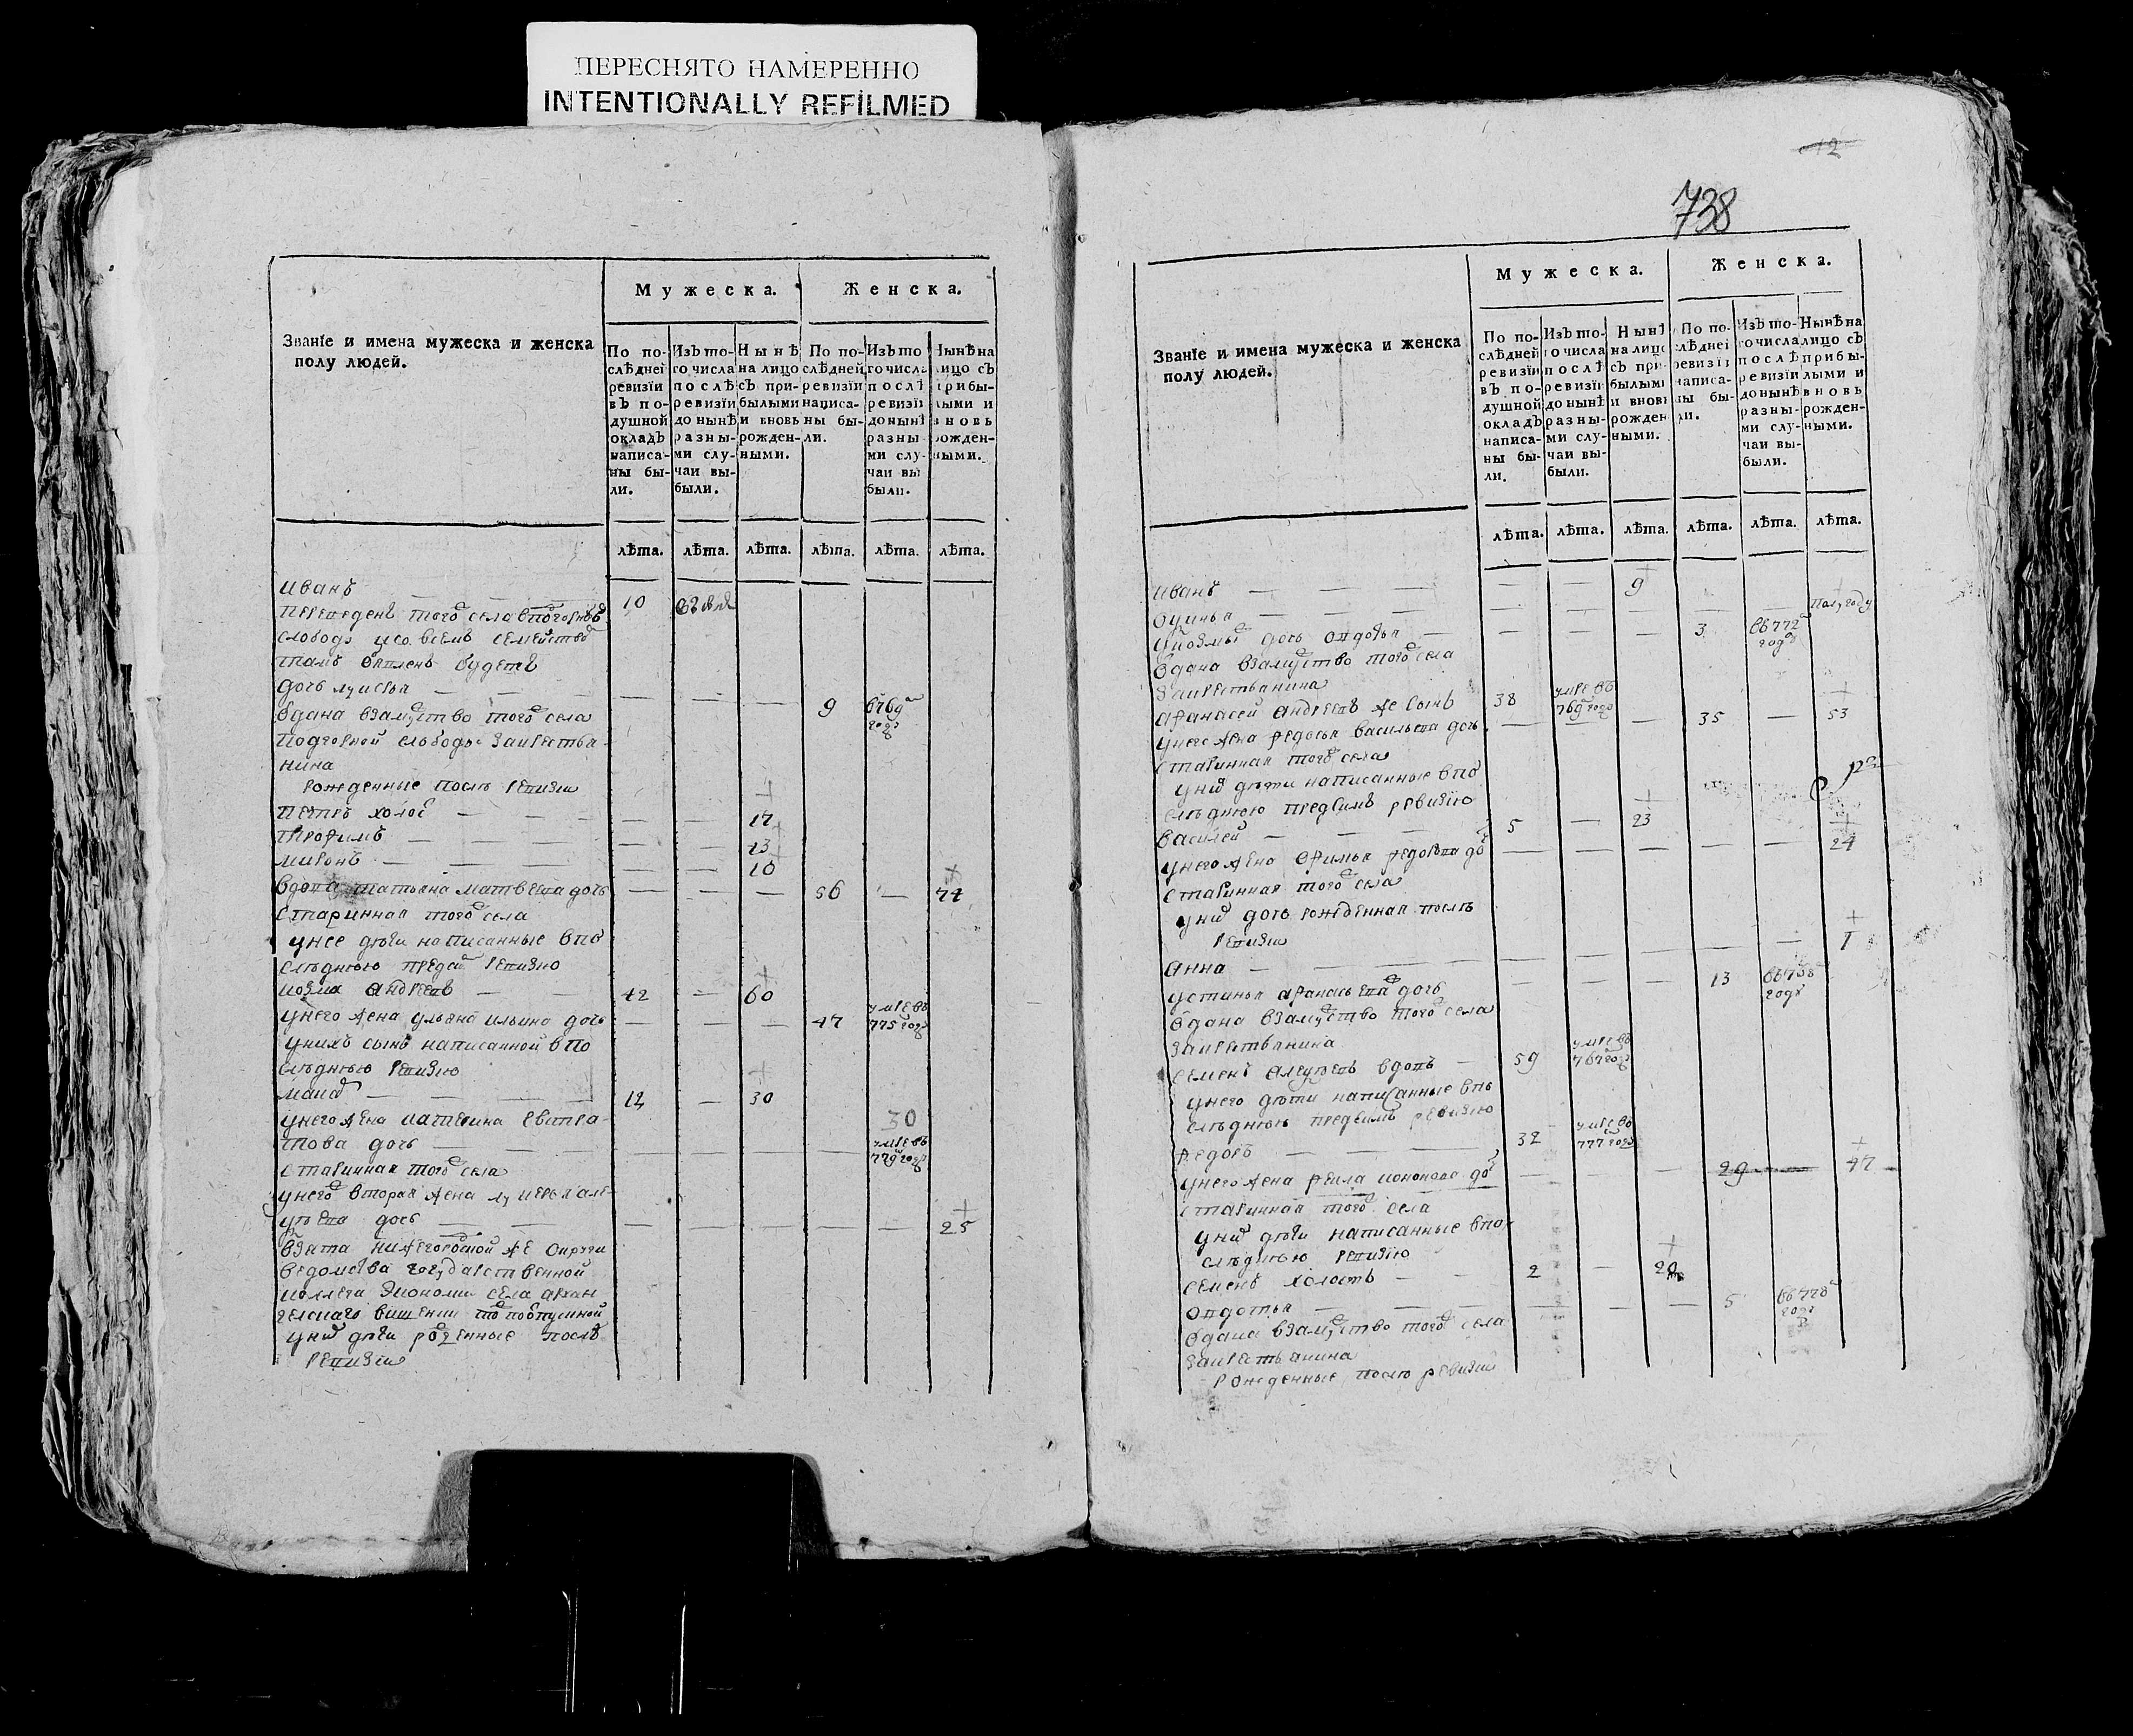 ПЕРЕСНЯТО НАМЕРЕННО
INTENTIONALLY REFILMED
Званіе и имена мужеска и женска
полу людей.
Мужеска.
Женска.
По по-
слѣдней
ревизіи
въ по-
душной
окладъ
написа-
ны бы-
ли.
Изъ то-
го числа
послѣ
ревизіи
до нынѣ
разны-
ми слу-
чаи вы-
были.
Нынѣ
на лицо
съ при-
былыми
и вновь
рожден-
ными.
По по-
слѣдней
ревизіи
написа-
ны бы-
ли.
Изъ то
го числа
послѣ
ревизіи
до нынѣ
разны-
ми слу-
чаи вы
были.
Нынѣ на
лицо съ
прибы-
лыми и
вновь
рожден-
ными.
лѣта. лѣта. лѣта. лѣта. лѣта. лѣта.
иванъ — — — 10
слободу со всемъ семейство
тамъ будетъ
дочь — — — — — — 9
вдана взамуство того села
Подгорной слободы
нина
рожденные послѣ ревизии
Петръ холос — — — — — 17
трофимъ — — — — — 13
миронъ — — — — — 10
вдова татьяна матвеева дочь — — — 56 — 74
старинная того села
унее дѣти написанные впо
слѣднюю пред ревизию
козма андреевъ — 42 — 60
унего жена ульяна ильина дочь — — — 47 умре въ 775 году
унихъ сынъ написанной впо
слѣднюю ревизию
— — — 12 — 30
унего жена катерина евстра-
това дочь — — — — — 30 умре въ 779 году
старинная того села
унего вторая жена
дочь — — — — — — — 25
взята нижегородской же округи
ведомства государственной
коллеги экономи села архан
гелскаго
униx дѣти рожденные послѣ
ревизии
12
738
Званіе и имена мужеска и женска
полу людей.
Мужеска.
Женска.
По по-
слѣдней
ревизіи
въ по-
душной
окладъ
написа-
ны бы-
ли.
Изъ то-
го числа
послѣ
ревизіи
до нынѣ
разны-
ми слу-
чаи вы-
были.
Нынѣ
на лицо
съ при-
былыми
и вновь
рожден
ными.
По по-
слѣдней
ревизіи
написа-
ны бы-
ли.
Изъ то-
го числа
послѣ
ревизіи
до нынѣ
разны-
ми слу-
чаи вы-
были.
Нынѣ на
лицо съ
прибы-
лыми и
вновь
рожден-
ными.
лѣта. лѣта. лѣта. лѣта. лѣта. лѣта.
иванъ — — — — — 9
— — — — — — — полугоду
укозмы дочь овдотья — — — — 3 въ 772 году
вдана взамуство того села
закрестьянина
афанасей андреевъ же сынъ 38 умре въ 769 году
унего жена федосья васильева дочь — — — 35 — 53
старинная того села
униx дѣти написанные впо
слѣднюю пред симъ ревизию
василей — — — 5 — 23
унего жена ефимья федорова до — — — — — 24
старинная того села
униx дочь рожденная послѣ
ревизии
анна — — — — — — — — 1
устинья афанасьева дочь — — — 13 въ 768 году
вдана взамуство того села
закрестьянина
семенъ вдовъ — 59 умре въ 767 году
унего дѣти написанные впо
слѣднюю пред симъ ревизию
федоръ — — — 32 умре въ 777 году
унего жена до — — — 29 — 47
старинная того села
униx дѣти написанные впо
слѣднюю ревизию
семенъ холостъ — — 2 — 20
овдотья — — — — — — 5 въ 778 году
вдана взамуство того села
закрестьянина
рожденные после ревизии